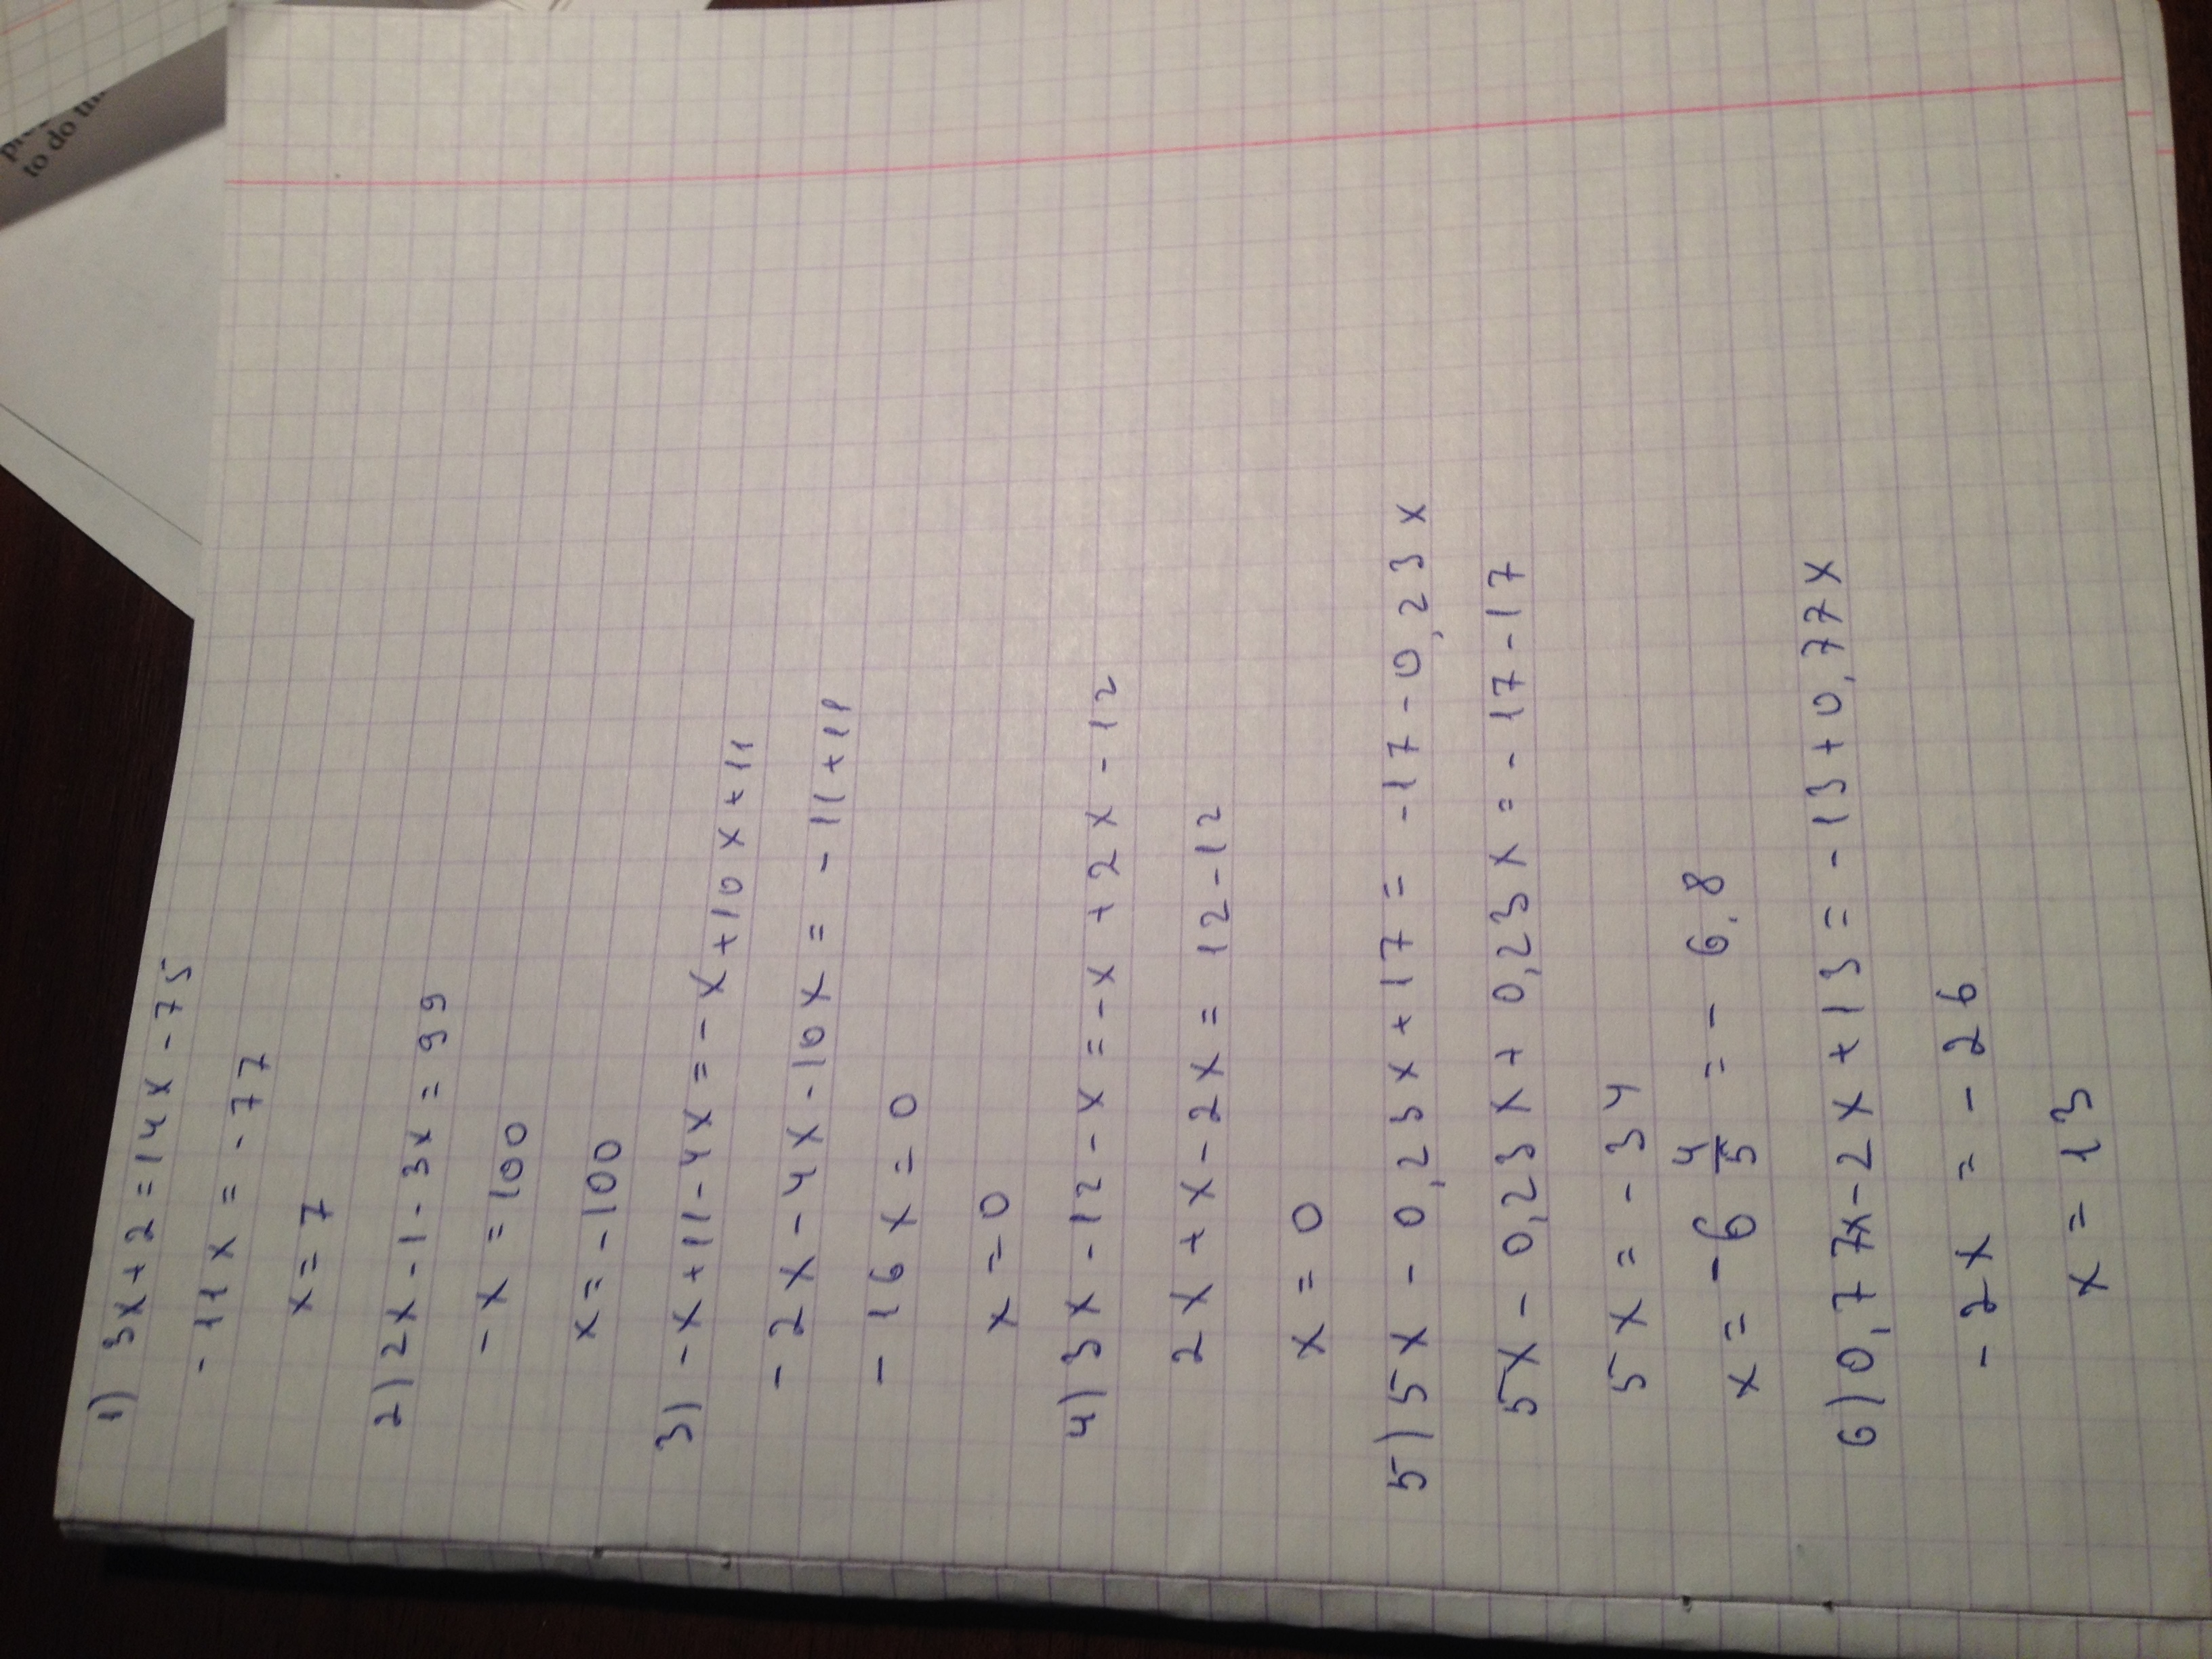 to do
1) 3x+2=14x-75
-11x=-77
x=7
2) 2x-1-3x=99
-x=100
x=-100
3) -x+11-4x=-x+10x+11
-2x-4x-10x=-11+11
-16x=0
x=0
4) 3x-12-x=-x+2x-12
2x+x-2x=12-12
x=0
5) 5x-0,23x+17=-17-0,23x
5x-0,23x+0,23x=-17-17
5x=-34
x=-6 4/5=-6.8
6) 0,77x-2x+13=-13+0,77x
-2x=-26
x=13